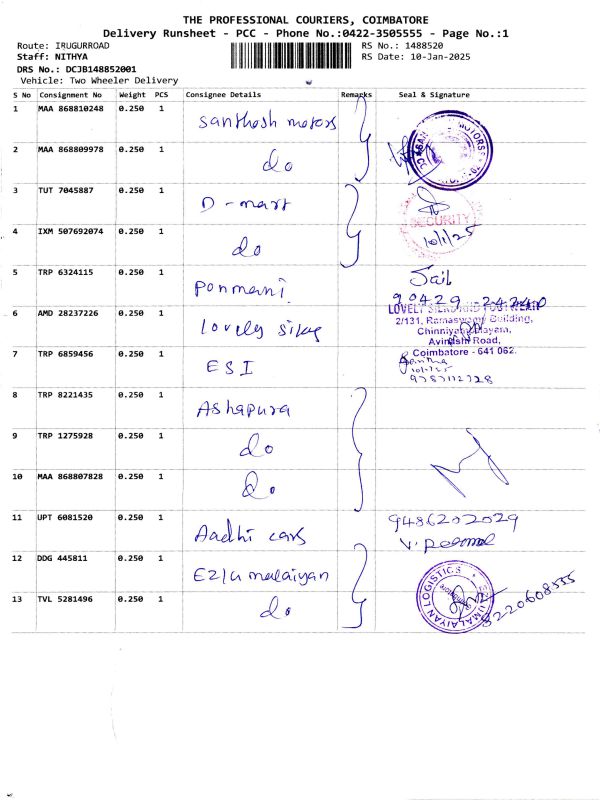 THE PROFESSIONAL COURIERS, COIMBATORE
Delivery Runsheet - PCC - Phone No.:0422-3505555 - Page No.:1
Route: IRUGURROAD RS No.: 1488520
Staff: NITHYA RS Date: 10-Jan-2025
DRS No.: DCJB148852001
Vehicle: Two Wheeler Delivery
S No Consignment No Weight PCS Consignee Details Remarks Seal & Signature
1 MAA 868810248 0.250 1 Santhosh motors
2 MAA 868809978 0.250 1 do
MOTORS
3 TUT 7045887 0.250 1 D-mart
SECURITY
4 IXM 507692074 0.250 1 do 10/1/25
5 TRP 6324115 0.250 1 Ponmani Sail
90429-24240
6 AMD 28237226 0.250 1 lovely silks
LOVELY FOOTWEAR
2/131, Ramaswamy Building,
Chinniyampalayam,
Avinashi Road,
Coimbatore - 641 062.
7 TRP 6859456 0.250 1 ESI
10/1/25
8 TRP 8221435 0.250 1 Ashapura
9 TRP 1275928 0.250 1 do
10 MAA 868807828 0.250 1 do
11 UPT 6081520 0.250 1 Aadhi cars 9486202029
12 DDG 445811 0.250 1 Ezhumalaiyan
13 TVL 5281496 0.250 1 do
UMALAIYAN LOGISTICS
9220608555